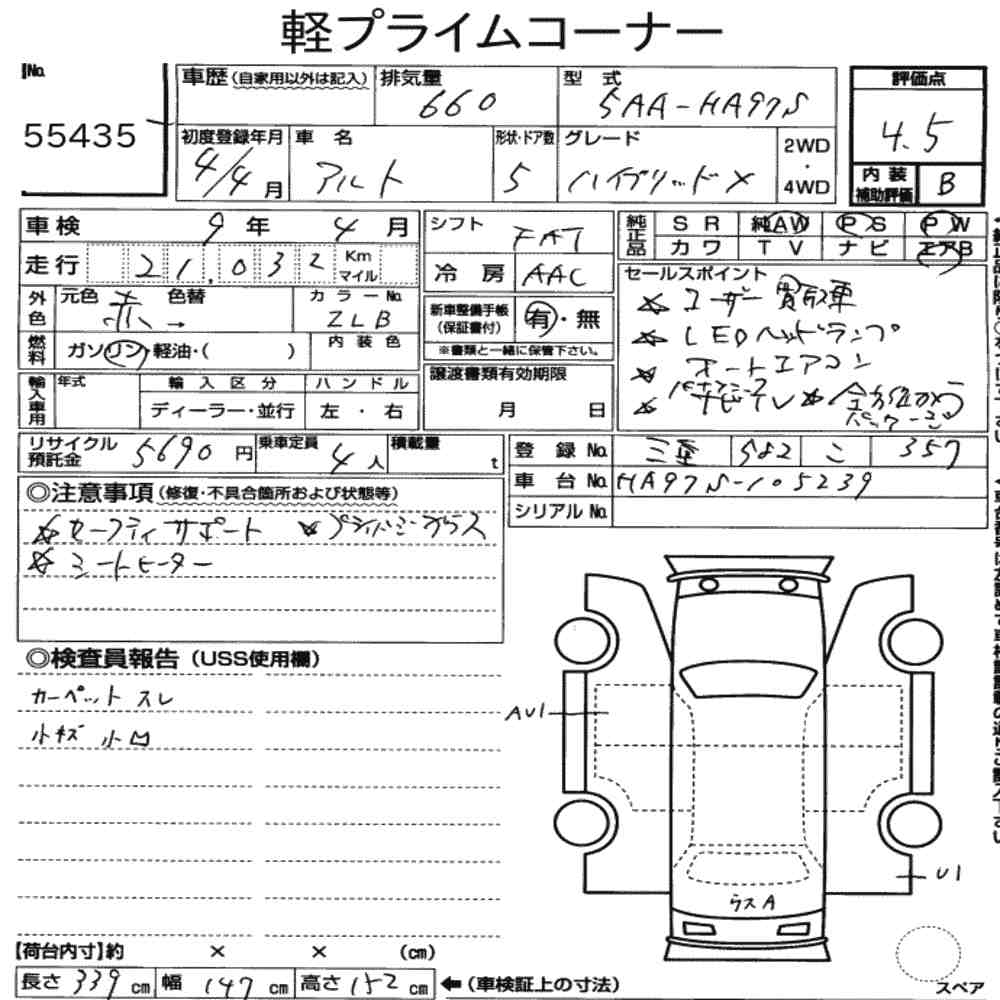 軽プライムコーナー
No.
55435
車歴(自家用以外は記入)
排気量
660
型 式
5AA-HA97S
評価点
4.5
初度登録年月
4/4月
車 名
アルト
形状・ドア数
5
グレード
ハイブリッドX
2WD
・
4WD
内 装
補助評価
B
車検 9年 4月
シフト FAT
純正品
SR 純AW PS PW
カワ TV ナビ エアB
走行 21,032 Km
マイル
冷 房 AAC
セールスポイント
☆ユーザー買取車
☆LEDヘッドランプ
オートエアコン
☆ナビTV ☆全方位カメラ
パッケージ
外色
元色 赤 色替
カラーNo.
ZLB
新車整備手帳
(保証書付)
有・無
※書類と一緒に保管下さい。
燃料
ガソリン・軽油・( )
内 装 色
輸入車用
年式
輸 入 区 分
ハ ン ド ル
ディーラー・並行
左 ・ 右
譲渡書類有効期限
月 日
リサイクル
預託金
5690円
乗車定員
4人
積載量
t
登 録 No. 三重 582 こ 357
車 台 No. HA97S-105239
シリアル No.
◎注意事項(修復・不具合箇所および状態等)
☆セーフティサポート ☆プライバシーガラス
☆シートヒーター
◎検査員報告(USS使用欄)
カーペットスレ
小キズ 小凹
AU1
U1
ラスA
【荷台内寸】約 × × (cm)
長さ 339 cm 幅 147 cm 高さ 152 cm ←(車検証上の寸法)
スペア